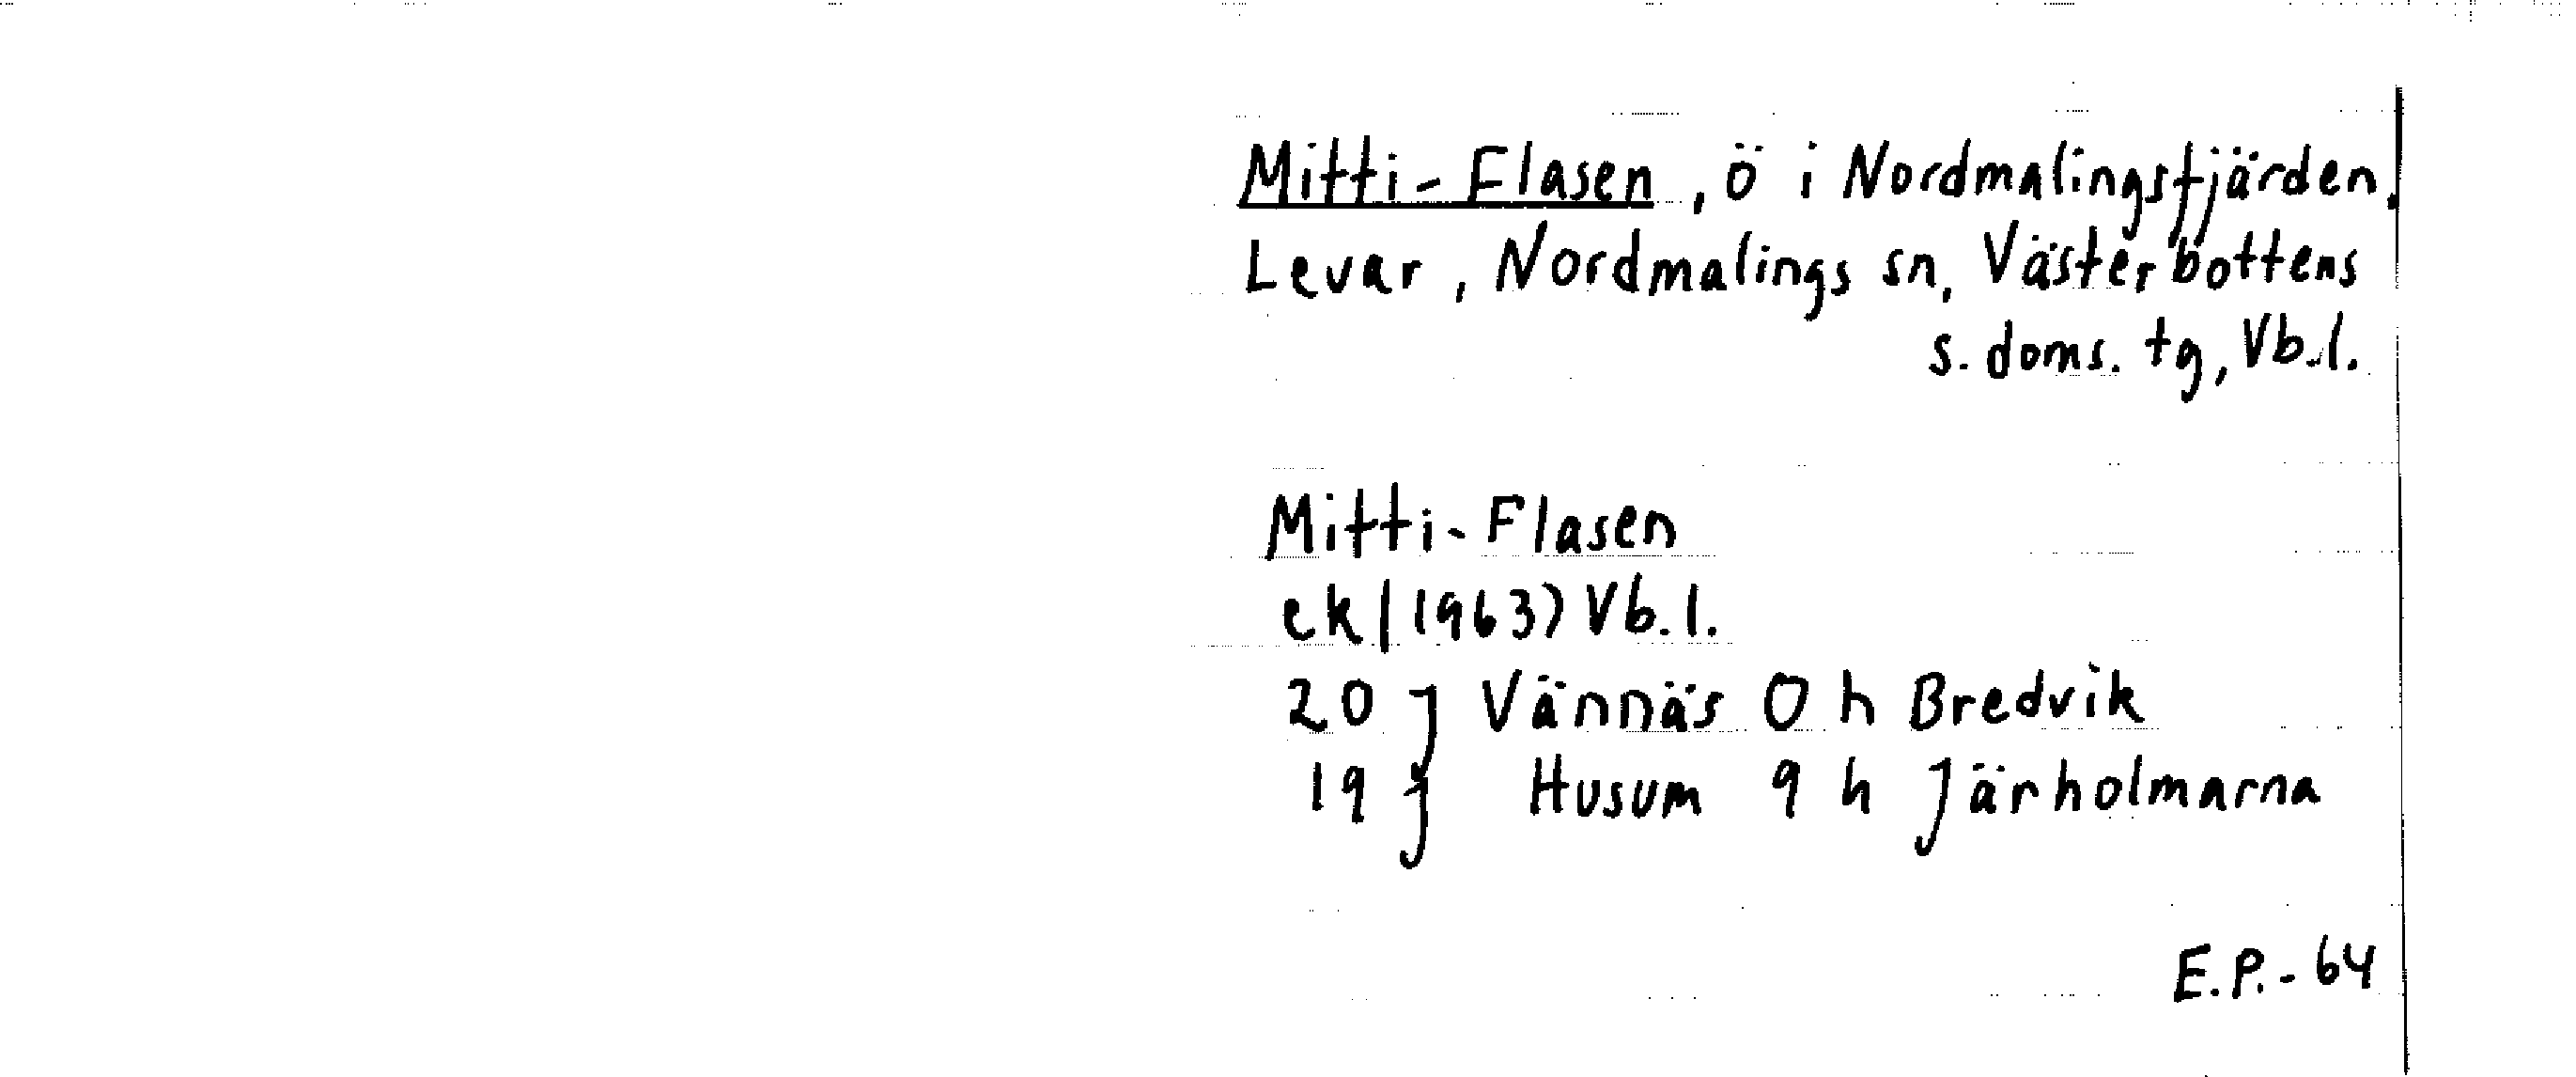 Mitti-Flasen, ö i Nordmalingsfjärden,
Levar, Nordmalings sn, Västerbottens
s. doms. tg, Vb.l.
Mitti-Flasen
ek (1963) Vb.l.
20 J Vännäs 0 h Bredvik
19 J Husum 9 h Järholmarna
E.P.-64